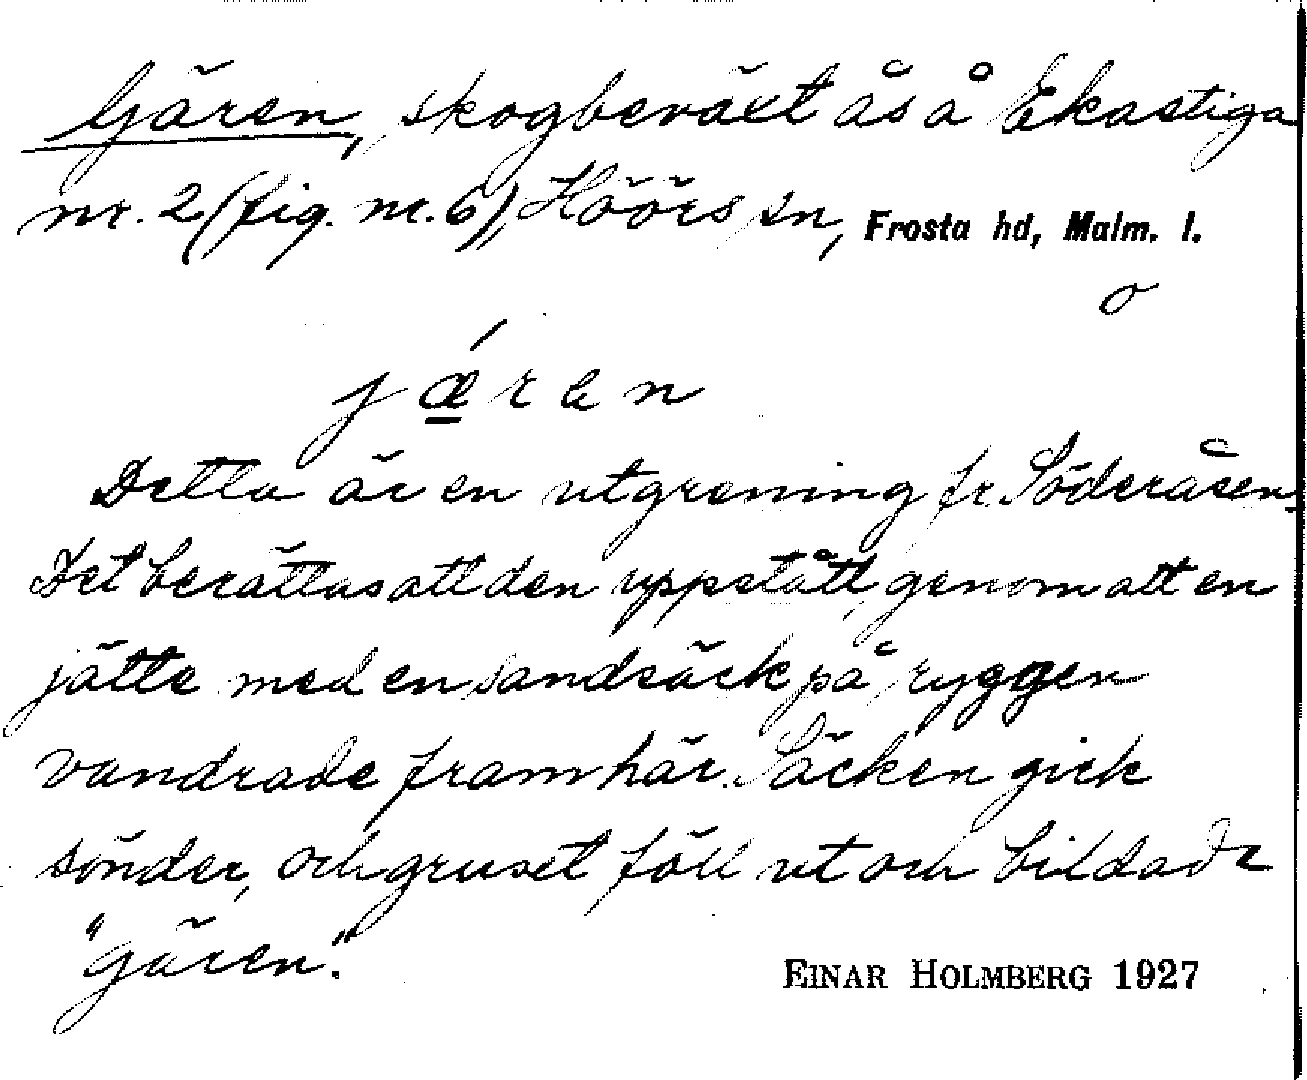 Gären, skogbeväxt ås å Ekastiga
nr. 2 (fig. nr. 6), Höörs sn, Frosta hd, Malm. l.
o
jǽren
Detta är en utgrening fr. Söderåsen.
Det berättas att den uppstått, genom att en
jätte med en sandsäck på ryggen
vandrade fram här. Säcken gick
sönder, och gruset föll ut och bildade
"gären".
EINAR HOLMBERG 1927